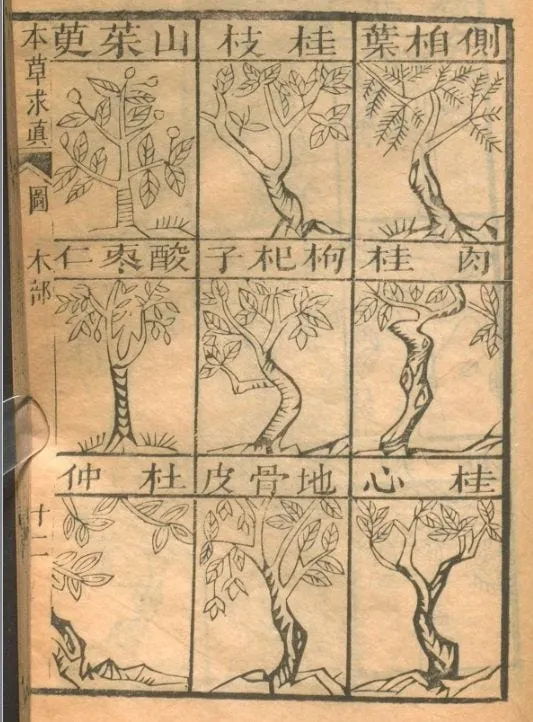 側栢葉
桂枝
山茱萸
肉桂
枸杞子
酸棗仁
桂心
地骨皮
杜仲
本草求眞 圖 木部 十二